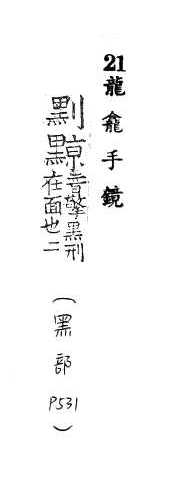 21龍龕手鏡
䵞黥音擎黑刑
在面也二
（黑部P531）